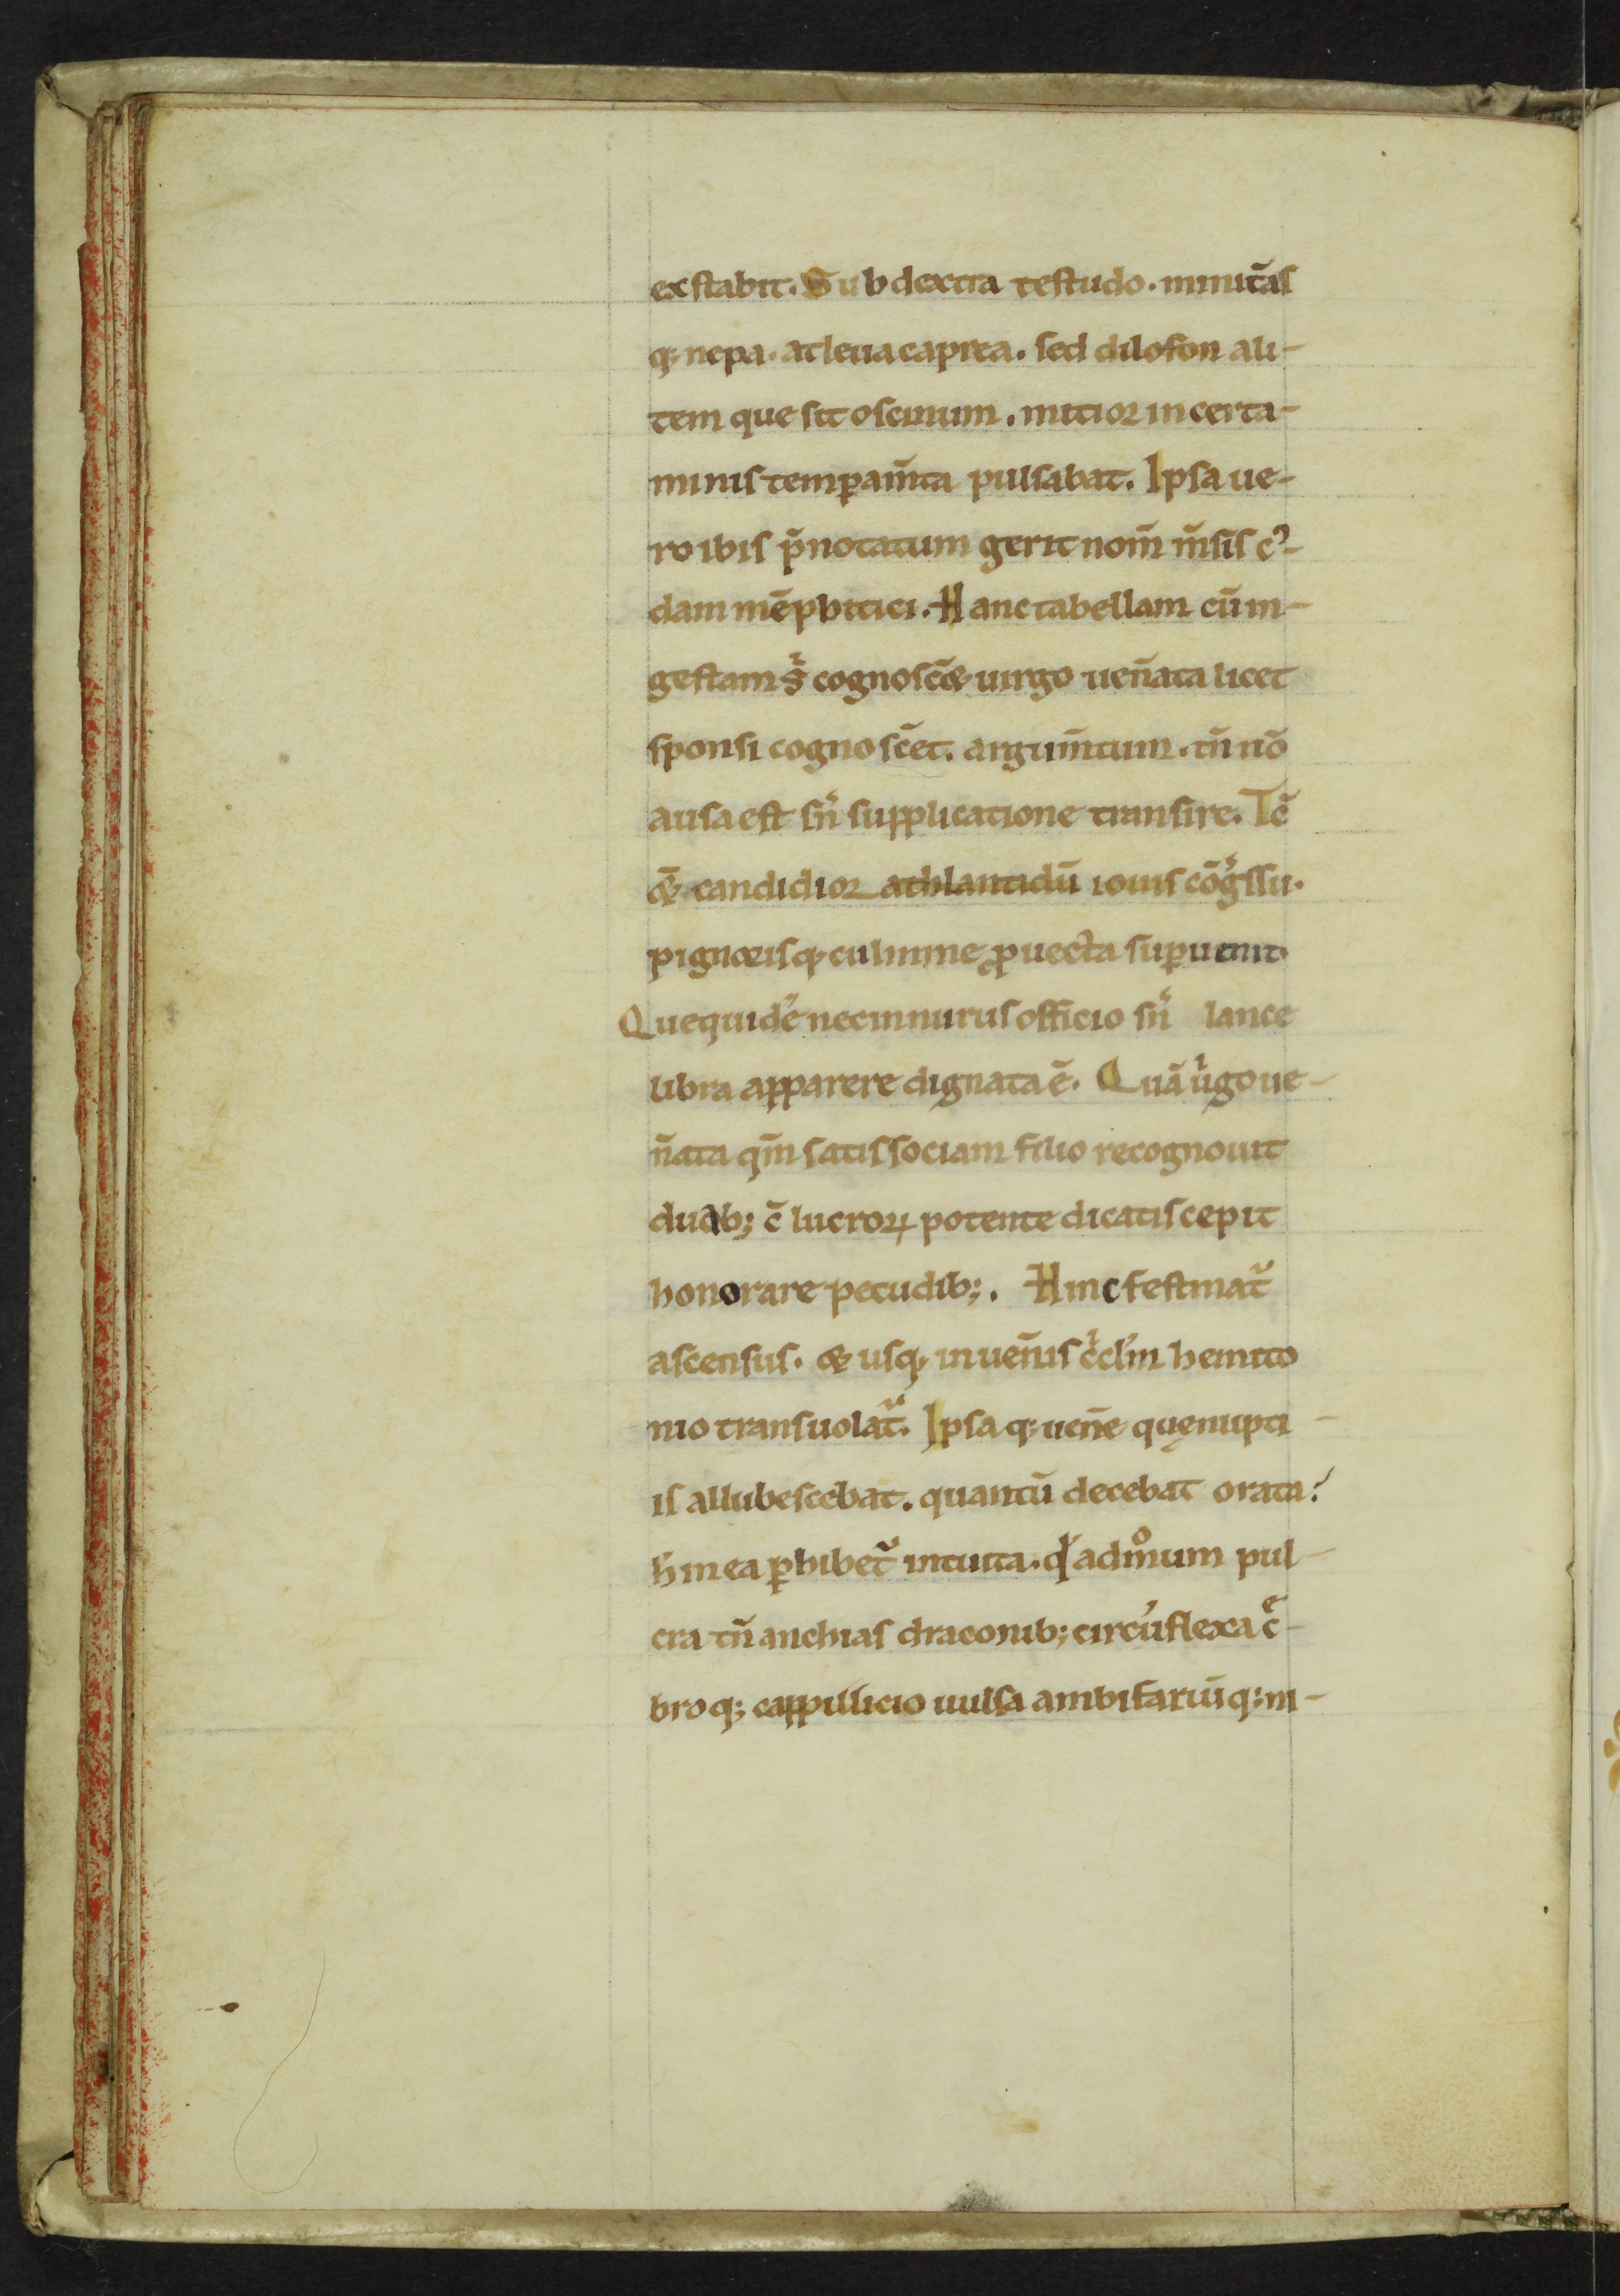 exstabit. Sub dextra testudo. minitās
q; nepa. atleua caprea. sed dilofon ali-
tem que sit oscinum. mitior in certa-
minis temꝑam̄ta pulsabat. Ipsa ue-
ro ibis p̄notatum gerit nom̄ m̄sis c᾿-
dam mēphitici. Hanc tabellam cū in-
gestam sͥ cognoscē& uirgo uen̄ata licet
sponsi cognosc̄et. argum̄tum. tn̄ nō
ausa est sn̄ supplicatione transire. Tc̄
&̄ candidior athlantidū iouis cōgͥssu.
pignorisq; culmine ꝓuecta suꝑuenit.
Quequidē nec innurus officio sn̄ lance
libra apparere dignata ē. Quā uͥgo ue-
n̄ata qm̄ satis sociam filio recognouit
duab; c̄ lucroꝝ potente dicatis cepit
honorare pecudib;. Hinc festinat᷑
ascensus. & usq; in uen̄is cͥcl̄m hemito
nio transuolat᷑. Ipsa q; uen̄e quę nupti-
is allubescebat. quantū decebat orata?
h̄ in ea ꝑhibet᷑ intuita. qͥ admͦum pul-
cra tn̄ anchias draconib; circūflexa cͤ-
broq; cappillicio uulsa ambifariūq; in-